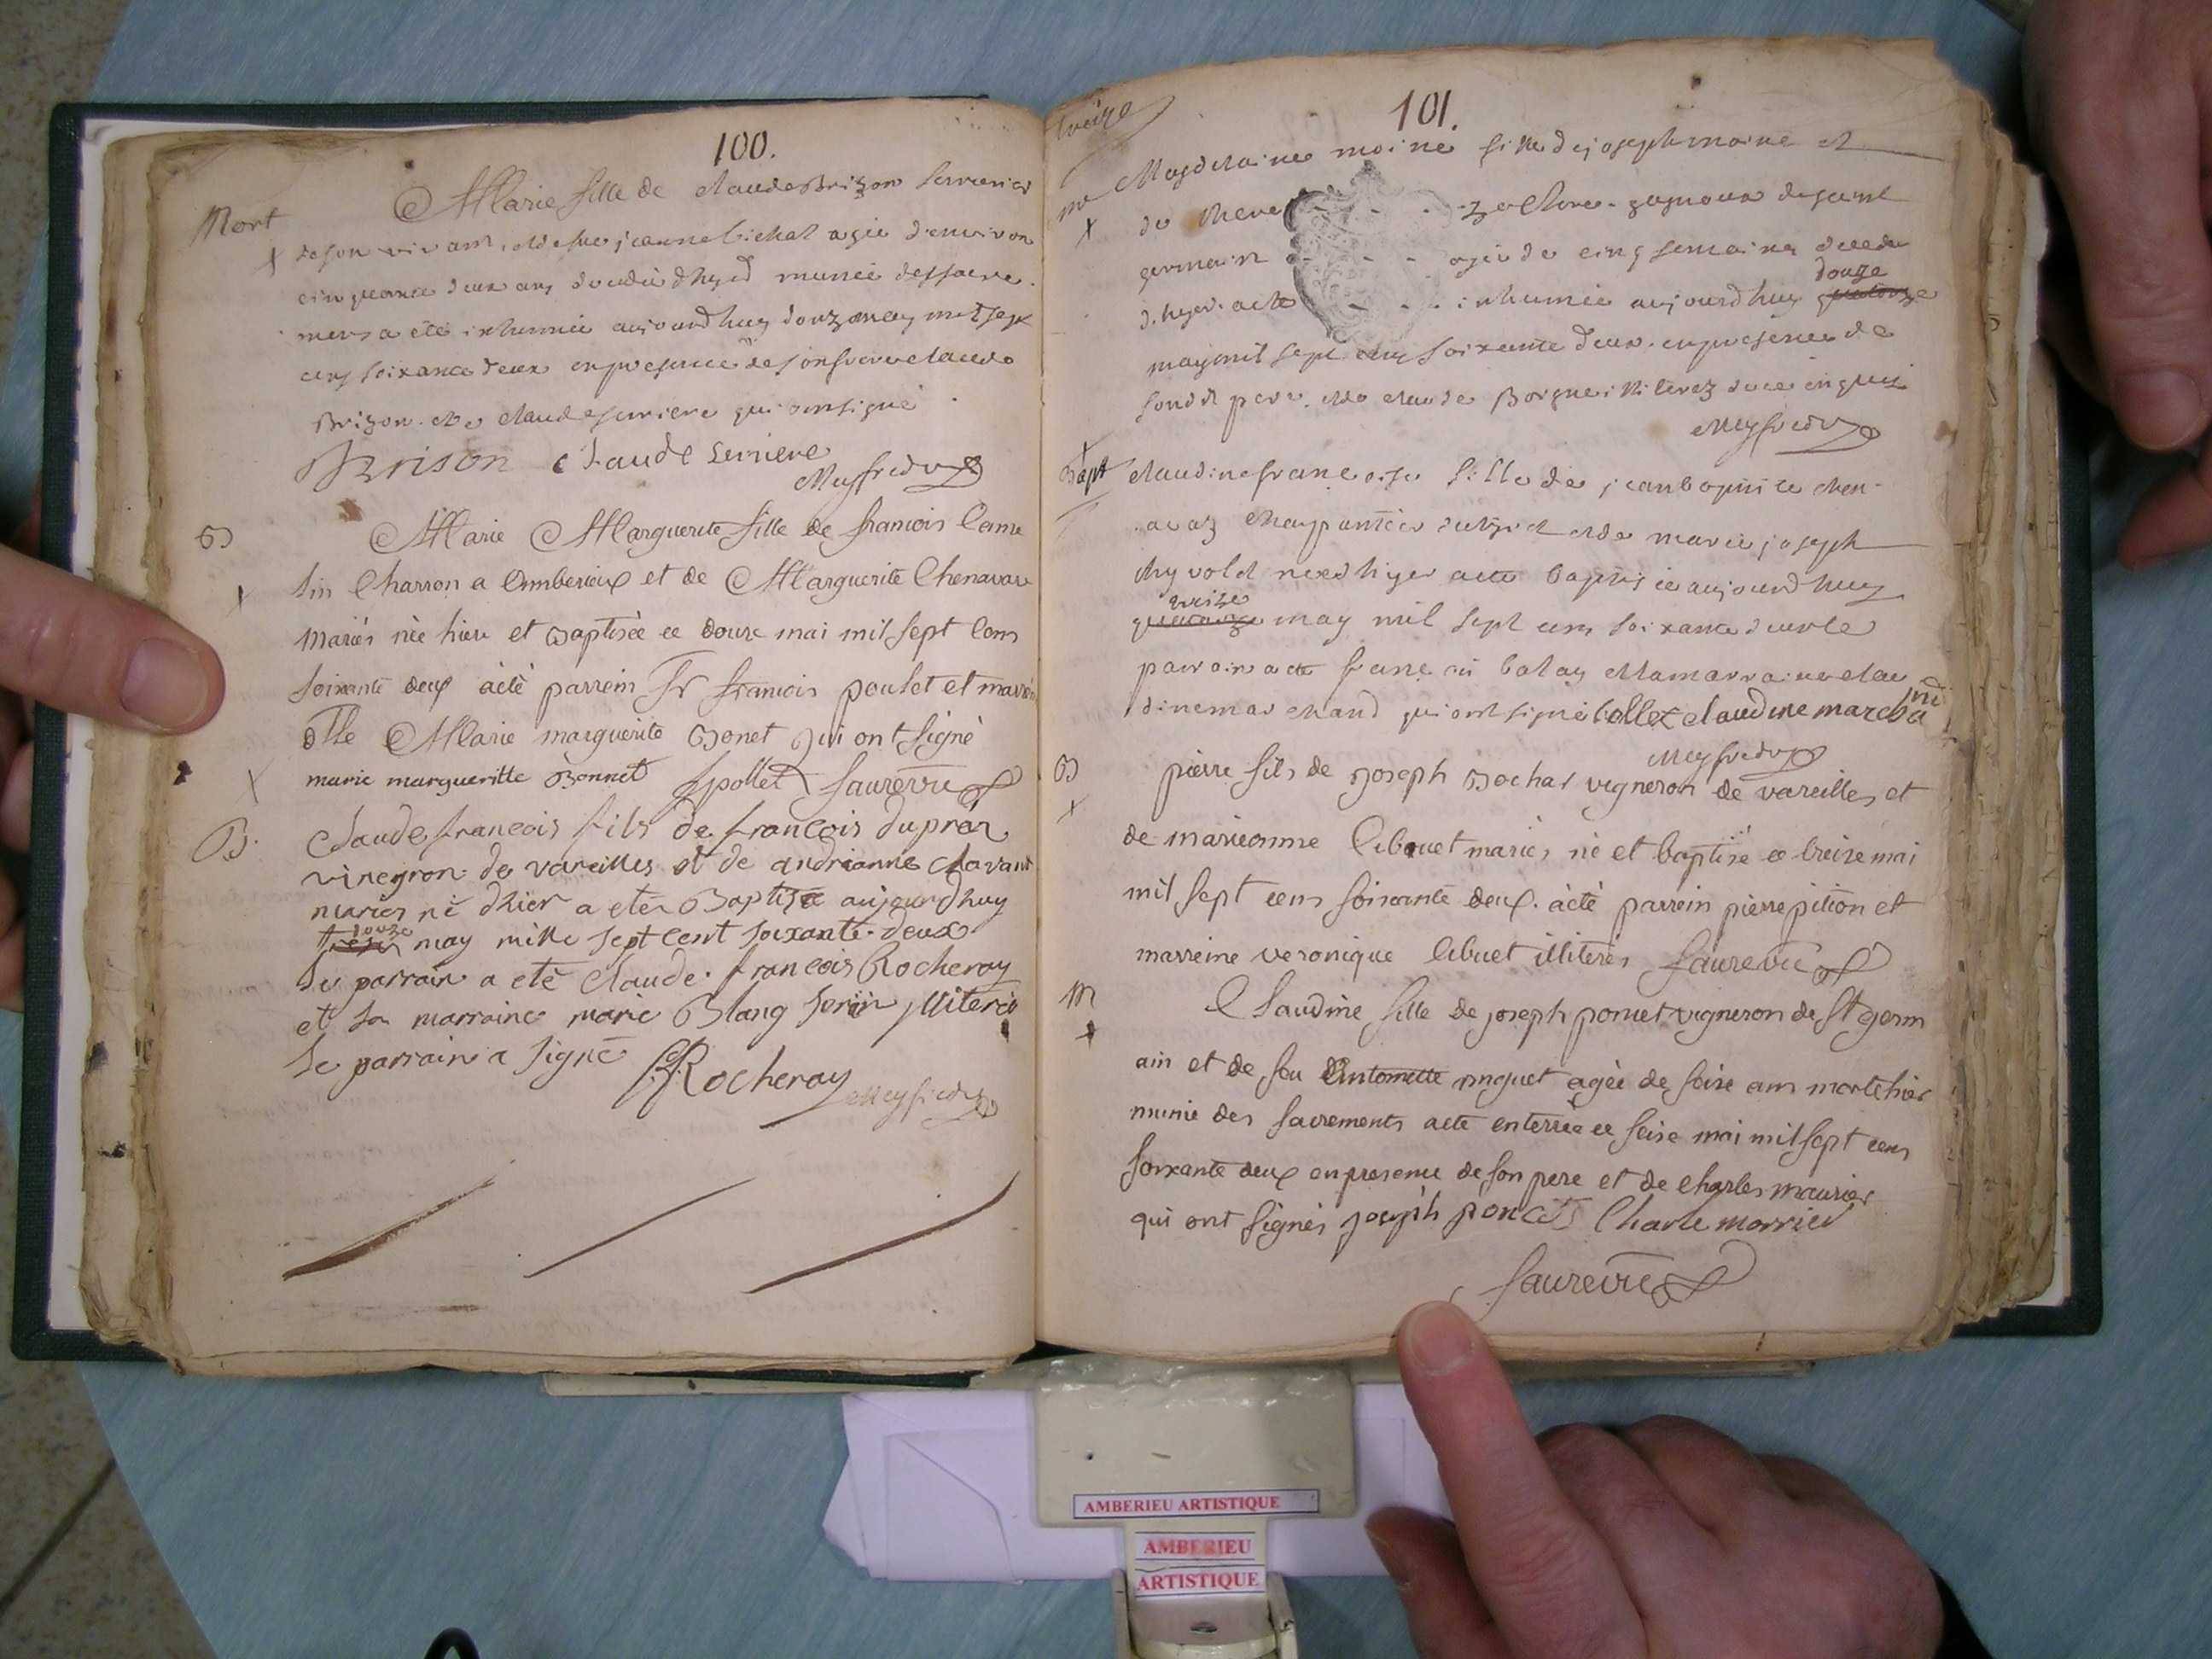 100.
Mort
Marie fille de claude Brizon serrurier
de son vivant et de feue jeanne bichat agée d'environ
cinquante deux ans decedée d'hyer munie des sacre
mens a été inhumée aujourdhuy douze may mil sept
cens soixante deux en presence de son frere claude
Brizon et de claude serriere qui ont signé
Brison Claude Serriere
Meyfredy
B
Marie Marguerite fille de francois Came
lin Charron a Amberieux et de Marguerite Chenavas
mariés née hiere et Baptisée ce douze mai mil sept Cens
soixante deux a été parrein Sr francois poulet et marrein
Dlle Marie marguerite Bonet Qui ont Signé
marie margueritte Bonnet fpollet faurevre
B.
Claude francois fils de francois dupraz
vineyron de vareilles et de andrianne chavant
mariés né dhier a eté Baptizé aujourdhuy
douze
may mille sept cent soixante deux
Le parrain a eté Claude francois Rocheray
et la marraine marie Blang Serin illiterée
Le parrain a signé Rocheray
Meyfredy
treize
101.
Magdelaine moine fille de joseph moine et
de Mere
germain agée de cinq semaines decedée
d'hyer a ete inhumée aujourdhuy quatorze
douze
may mil sept cens soixante deux en presence de
son dt pere et de claude Borgne illiterez de ce enquis
Meyfredy
Bapt
Claudine francoise fille de jean baptiste chen
avaz charpantier et de marie joseph
née d'hyer a ete baptisée aujourdhuy
treize
quatorze may mil sept cens soixante deux le
parrain a ete francois et la marraine clau
dine marchand qui ont signé bollet claudine marchand
Meyfredy
B
pierre fils de Joseph Bochat vigneron de vareilles et
de marieanne libouet mariés né et baptisé ce treize mai
mil sept cens soixante deux. a été parrein pierre pition et
marreine veronique libuet illiterés faurevre
M
Claudine fille de joseph poncet vigneron de St germ
ain et de feu Antoinette ringuet agée de seise ans morte hier
munie des sacrements a été enterrée ce seise mai mil sept cens
soixante deux en presence de son pere et de charles maurier
qui ont signés joseph poncet Charle morrier
faurevre
AMBERIEU ARTISTIQUE
AMBERIEU
ARTISTIQUE